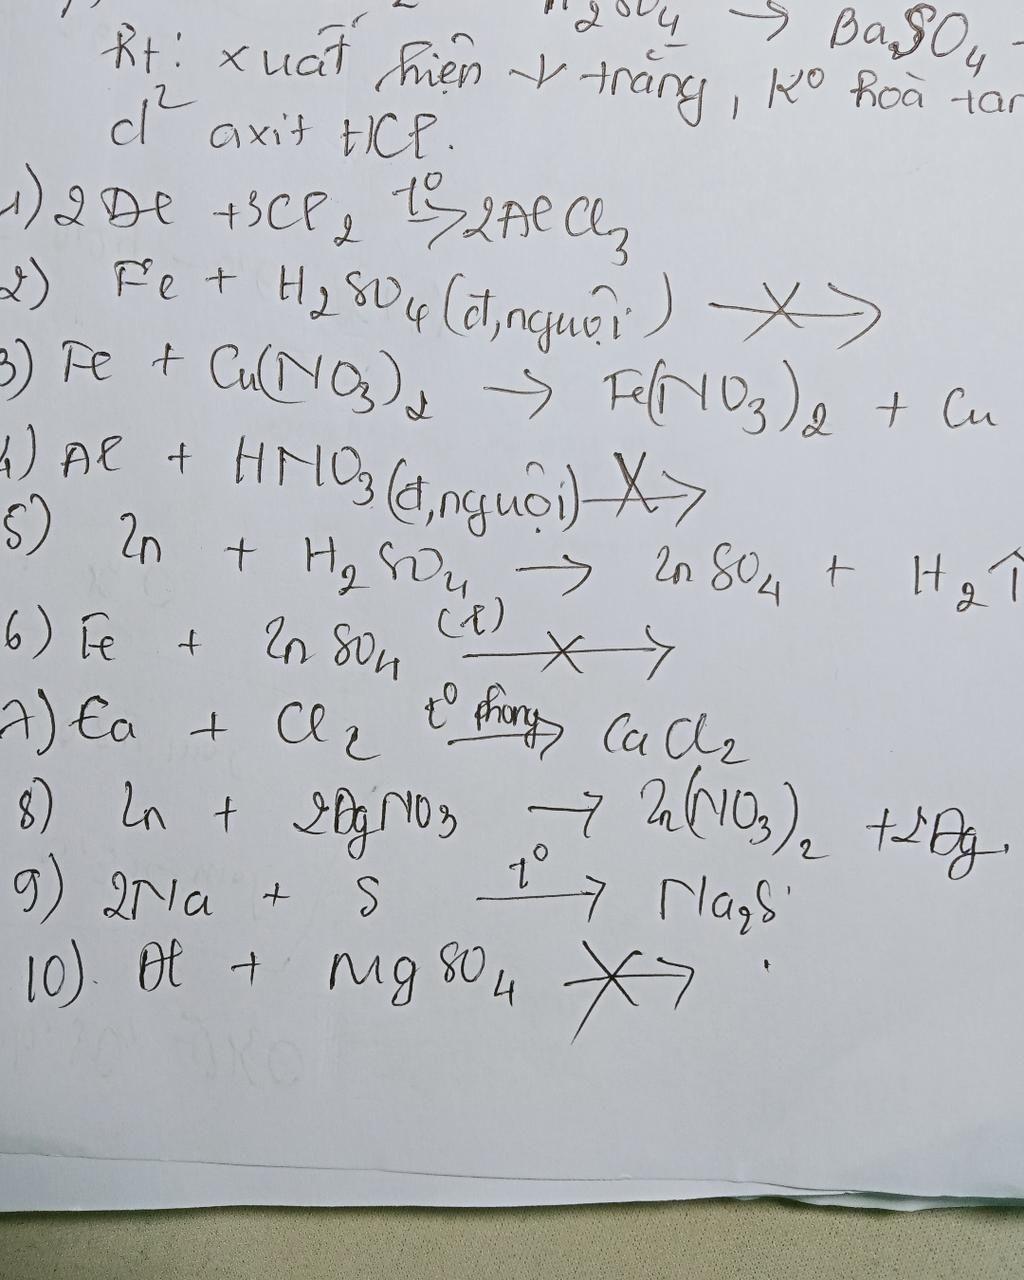 H₂SO₄ → BaSO₄
Ht: xuất hiện ↓ trắng, K⁰ hoà tan
d² axit HCl.
1) 2Al + 3Cl₂ t⁰→ 2AlCl₃
2) Fe + H₂SO₄ (đ, nguội) -X->
3) Fe + Cu(NO₃)₂ → Fe(NO₃)₂ + Cu
4) Al + HNO₃ (đ, nguội) -X->
5) Zn + H₂SO₄ (l) → ZnSO₄ + H₂↑
6) Fe + ZnSO₄ -X->
7) Ca + Cl₂ t⁰ phòng→ CaCl₂
8) Zn + 2AgNO₃ → Zn(NO₃)₂ + 2Ag.
9) 2Na + S t⁰→ Na₂S
10). Al + MgSO₄ -X->